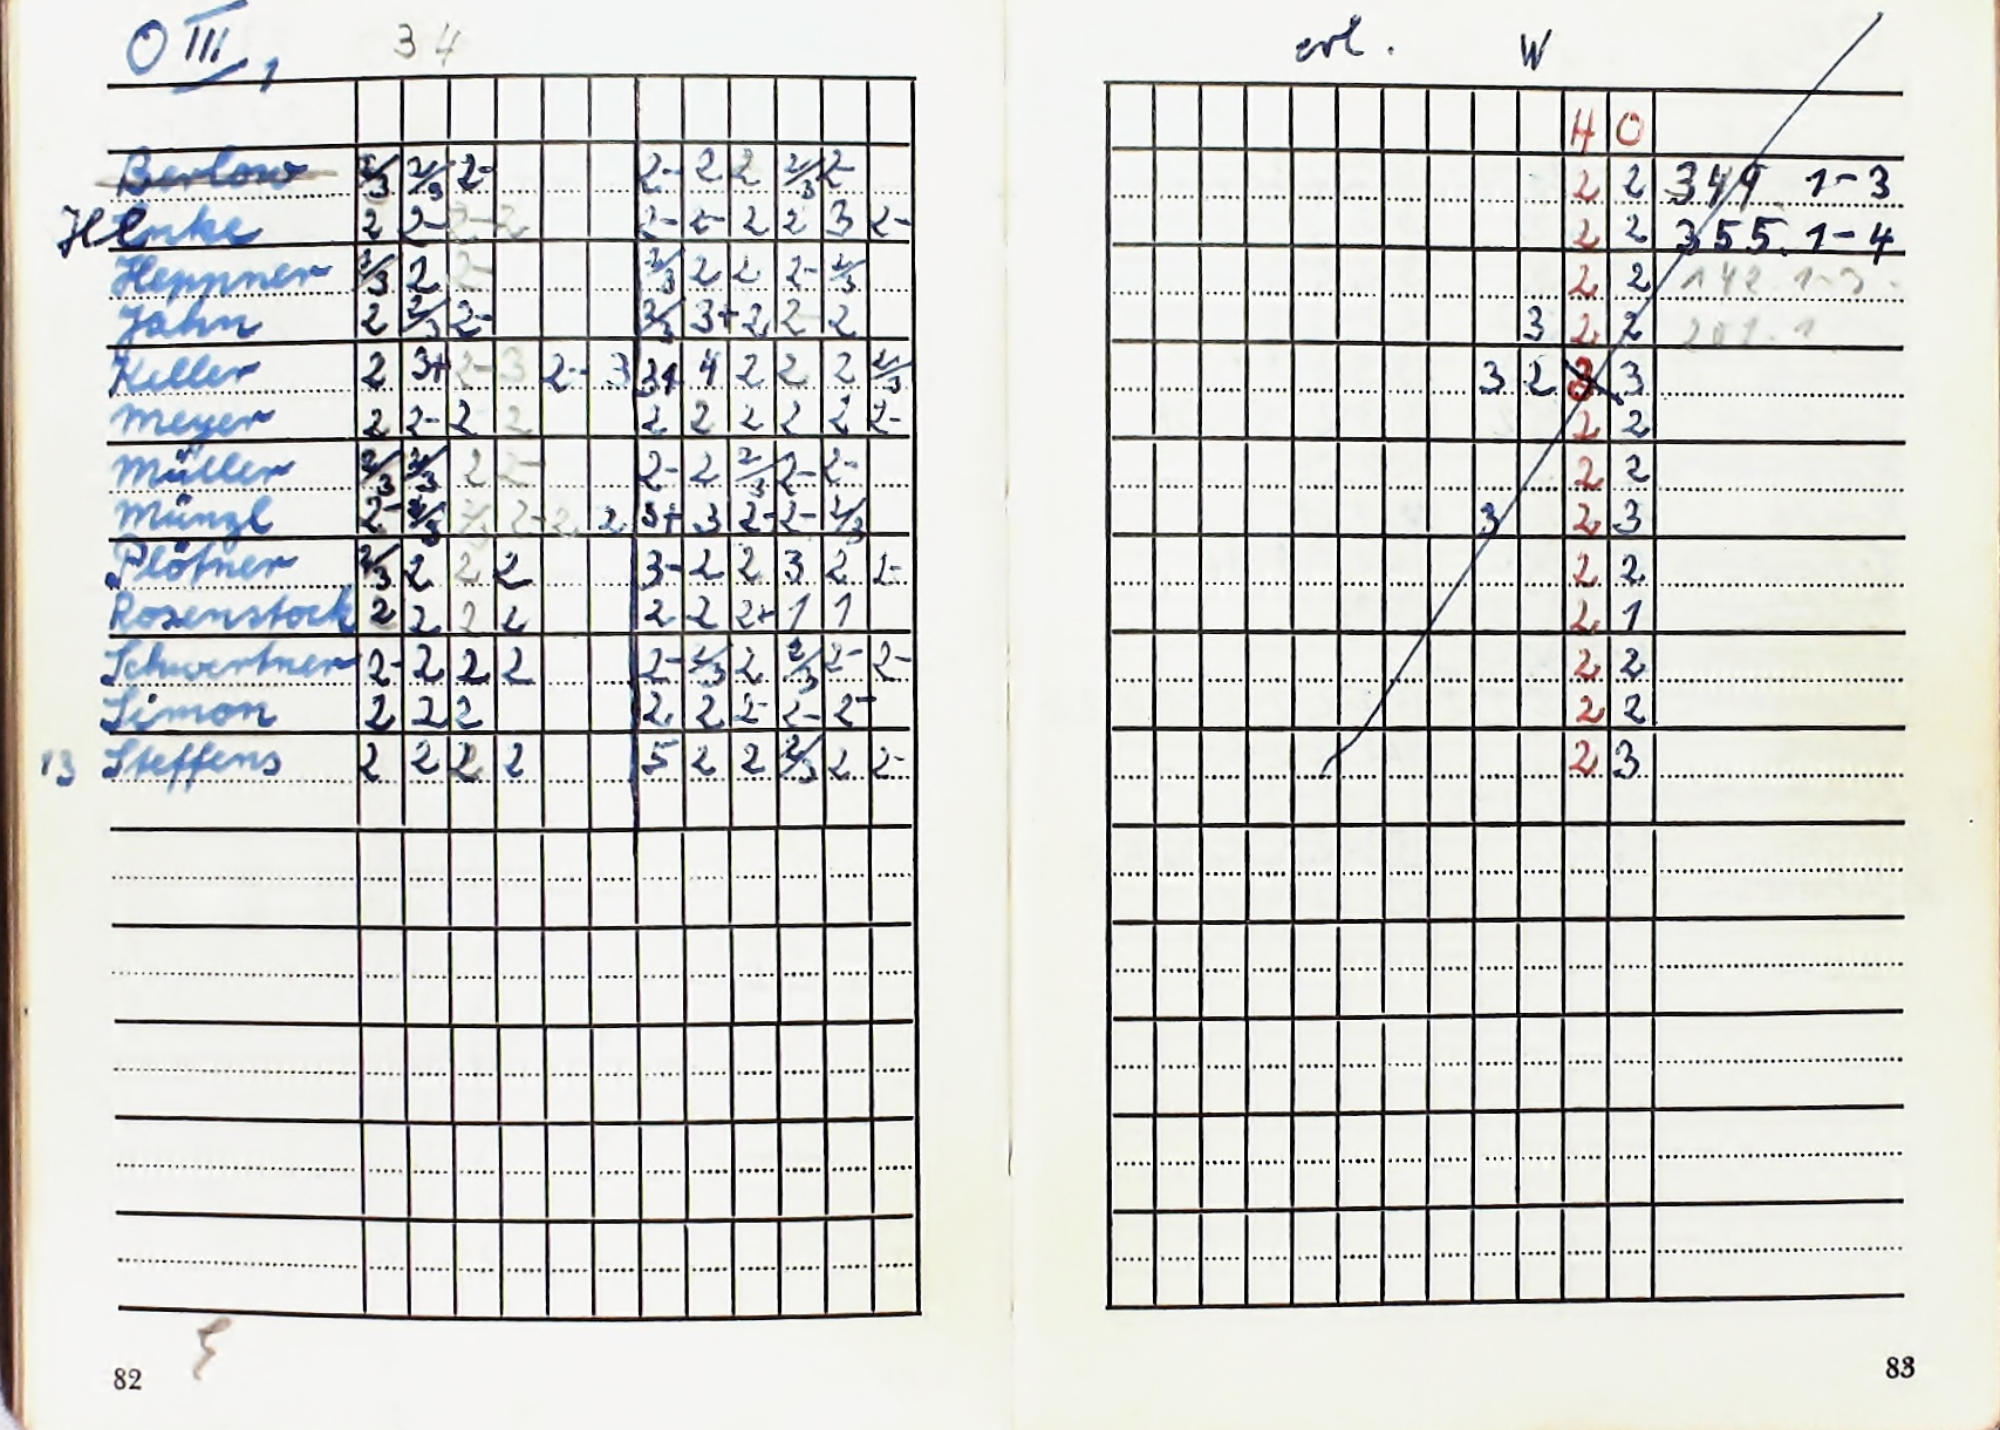 O III, 34
Berlow 2/3 2/3 2- 2- 2 2 2/3 2-
Henke 2 2- 2- 2 2- 2- 2 2 3 2-
Heppner 2/3 2 2- 2/3 2 2 2- 2/3
Jahn 2 2/3 2- 2/3 3+ 2 2- 2
Keller 2 3+ 2- 3 2- 3 3+ 4 2 2 2 2/3
Meyer 2 2- 2 2 2 2 2 2 2 2-
Müller 2/3 2/3 2 2- 2- 2 2/3 2- 2-
Münzl 2- 2/3 2/3 2- 2 2 3+ 3 2- 2- 2/3
Plötner 2/3 2 2 2 3- 2 2 3 2 2-
Rosenstock 2 2 2 2 2 2 2+ 1 1
Schwertner 2- 2 2 2 2- 2/3 2 2/3 2- 2-
Simon 2 2 2 2 2 2- 2- 2-
13 Steffens 2 2 2 2 5 2 2 2/3 2 2-
82
erl. W
H O
2 2 349 1-3
2 2 355. 1-4
2 2 142. 1-3
3 2 2 201. 1
3 2 3 3
2 2
2 2
3 2 3
2 2
2 1
2 2
2 2
2 3
83